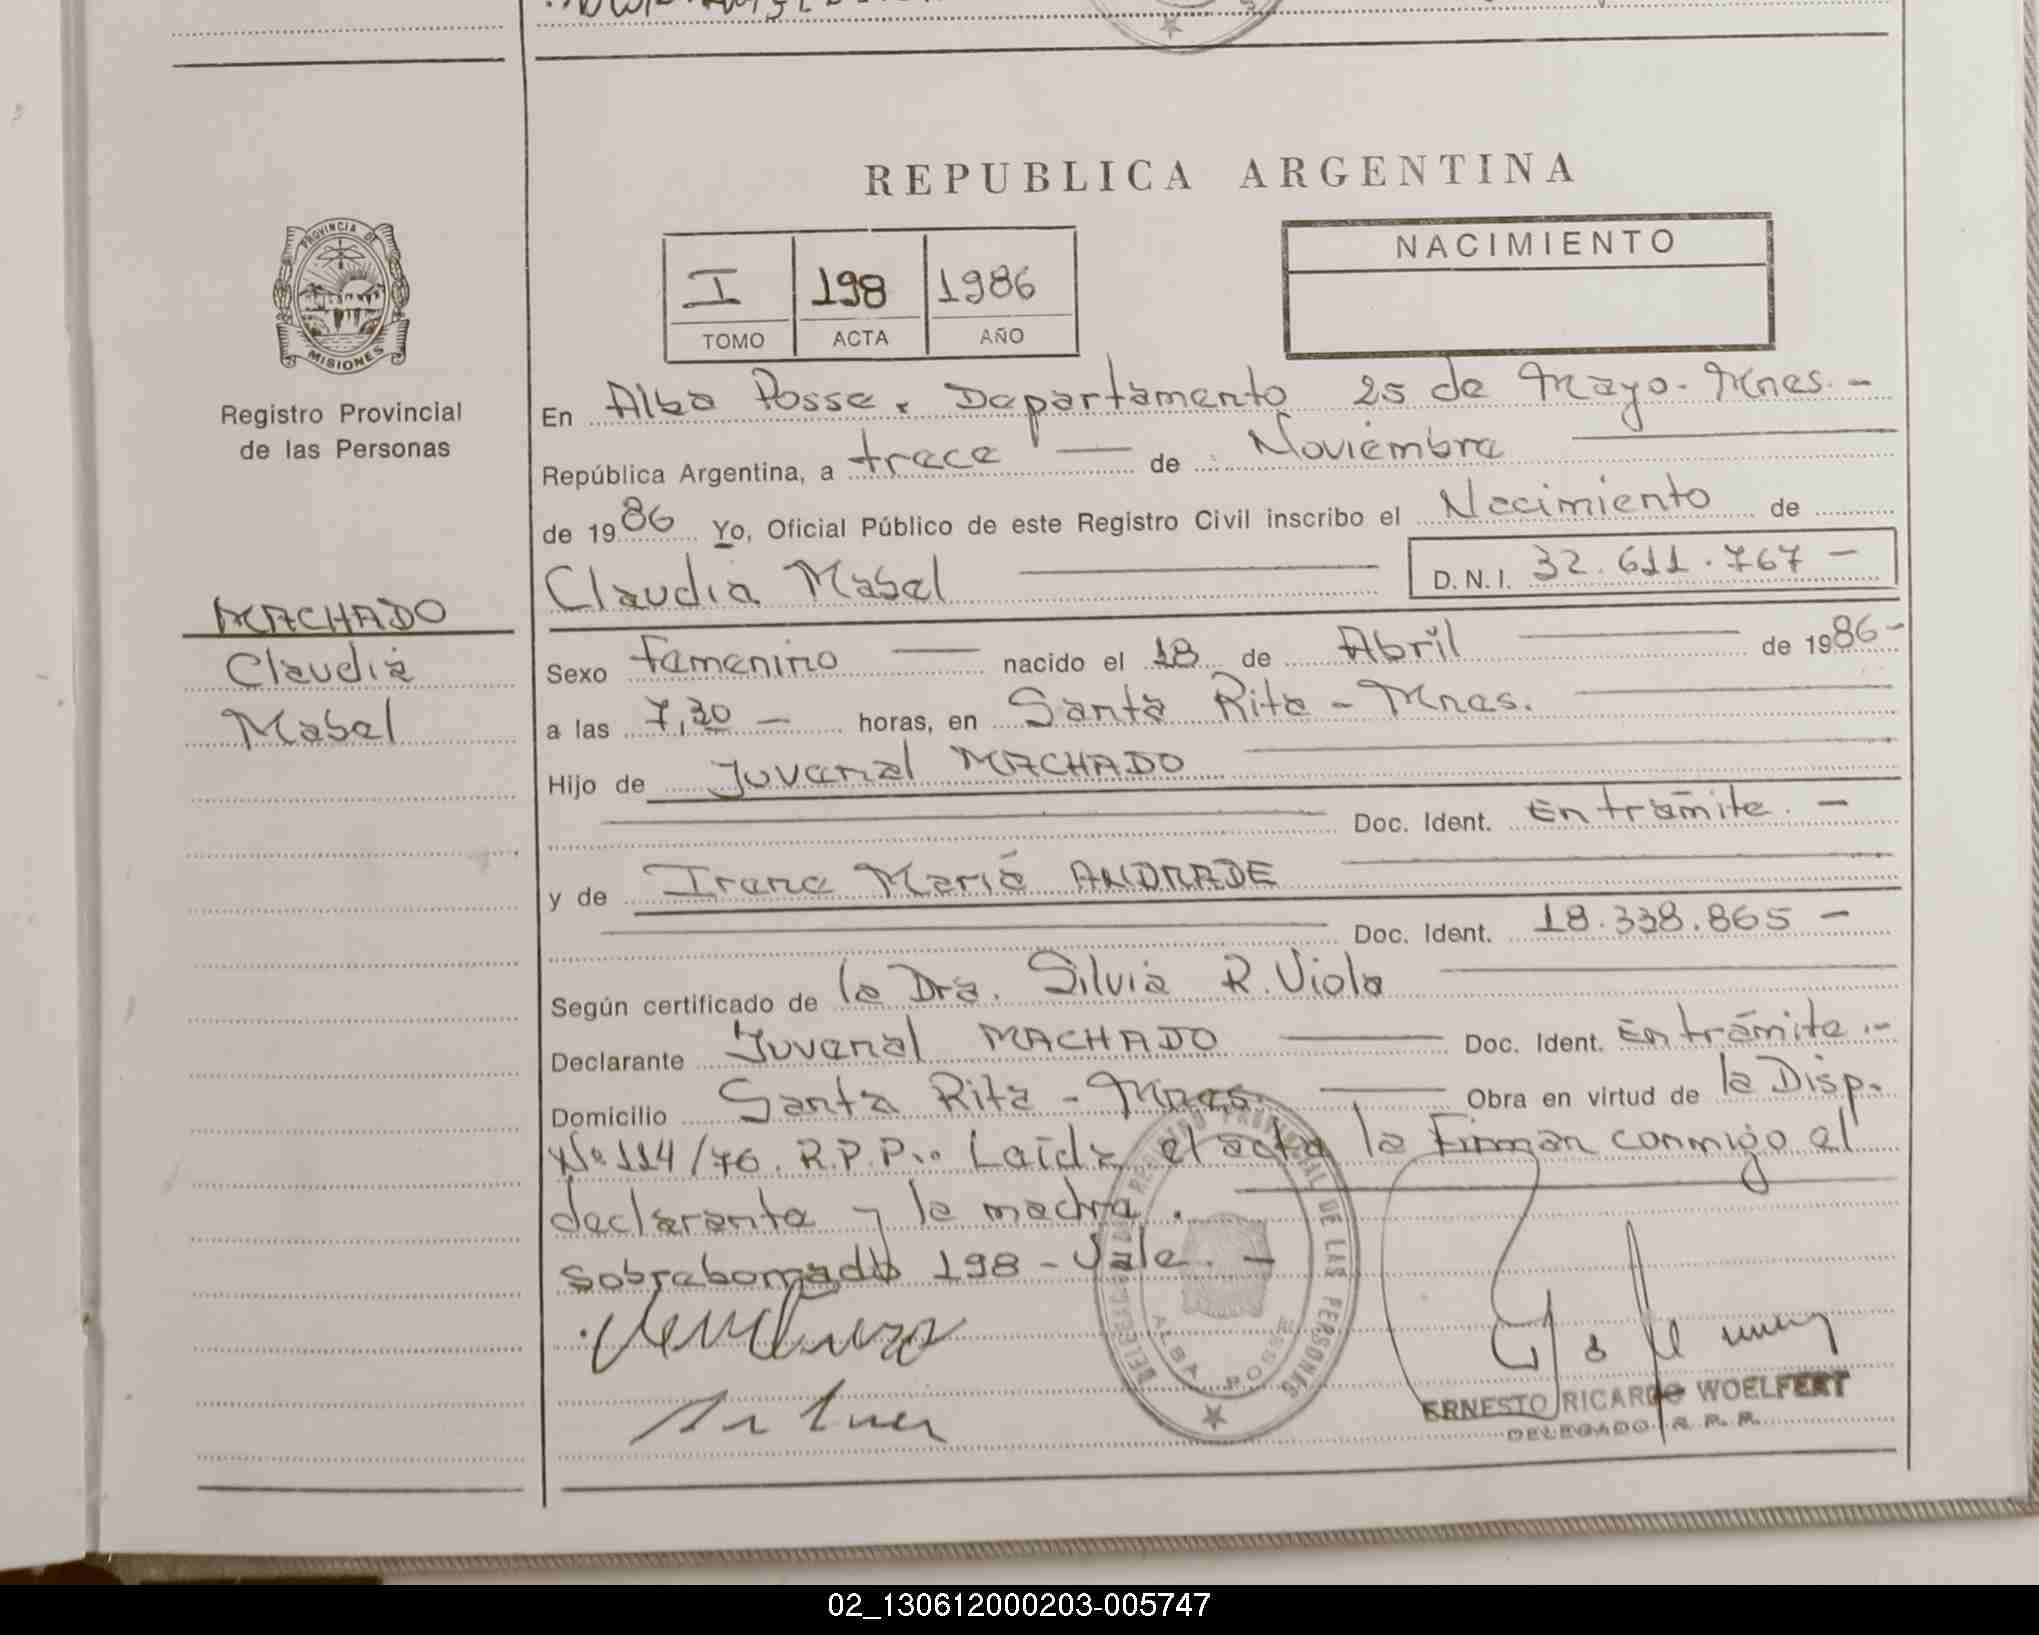 REPUBLICA ARGENTINA
PROVINCIA DE
MISIONES
Registro Provincial
de las Personas
NACIMIENTO
I 198 1986
TOMO ACTA AÑO
En Alba Posse, Departamento 25 de Mayo - Mnes. -
República Argentina, a trece — de Noviembre
de 1986 Yo, Oficial Público de este Registro Civil inscribo el Nacimiento de
Claudia Mabel D.N.I. 32.611.767 -
MACHADO
Claudia
Mabel
Sexo femenino — nacido el 18 de Abril — de 1986-
a las 7,30 — horas, en Santa Rita - Mnes.
Hijo de Juvenal MACHADO
Doc. Ident. En trámite. -
y de Irene María ANDRADE
Doc. Ident. 18.338.865 -
Según certificado de la Dra. Silvia R. Viola
Declarante Juvenal MACHADO — Doc. Ident. En trámite.-
Domicilio Santa Rita - Mnes. — Obra en virtud de la Disp.
Nº 114/76. R.P.P.. Leída el acta la Firman conmigo el
declarante y la madre.
Sobreborrado 198 - Vale. -
REGISTRO PROVINCIAL DE LAS PERSONAS
ALBA POSSE
ERNESTO RICARDO WOELFERT
DELEGADO R. P. P.
02_130612000203-005747